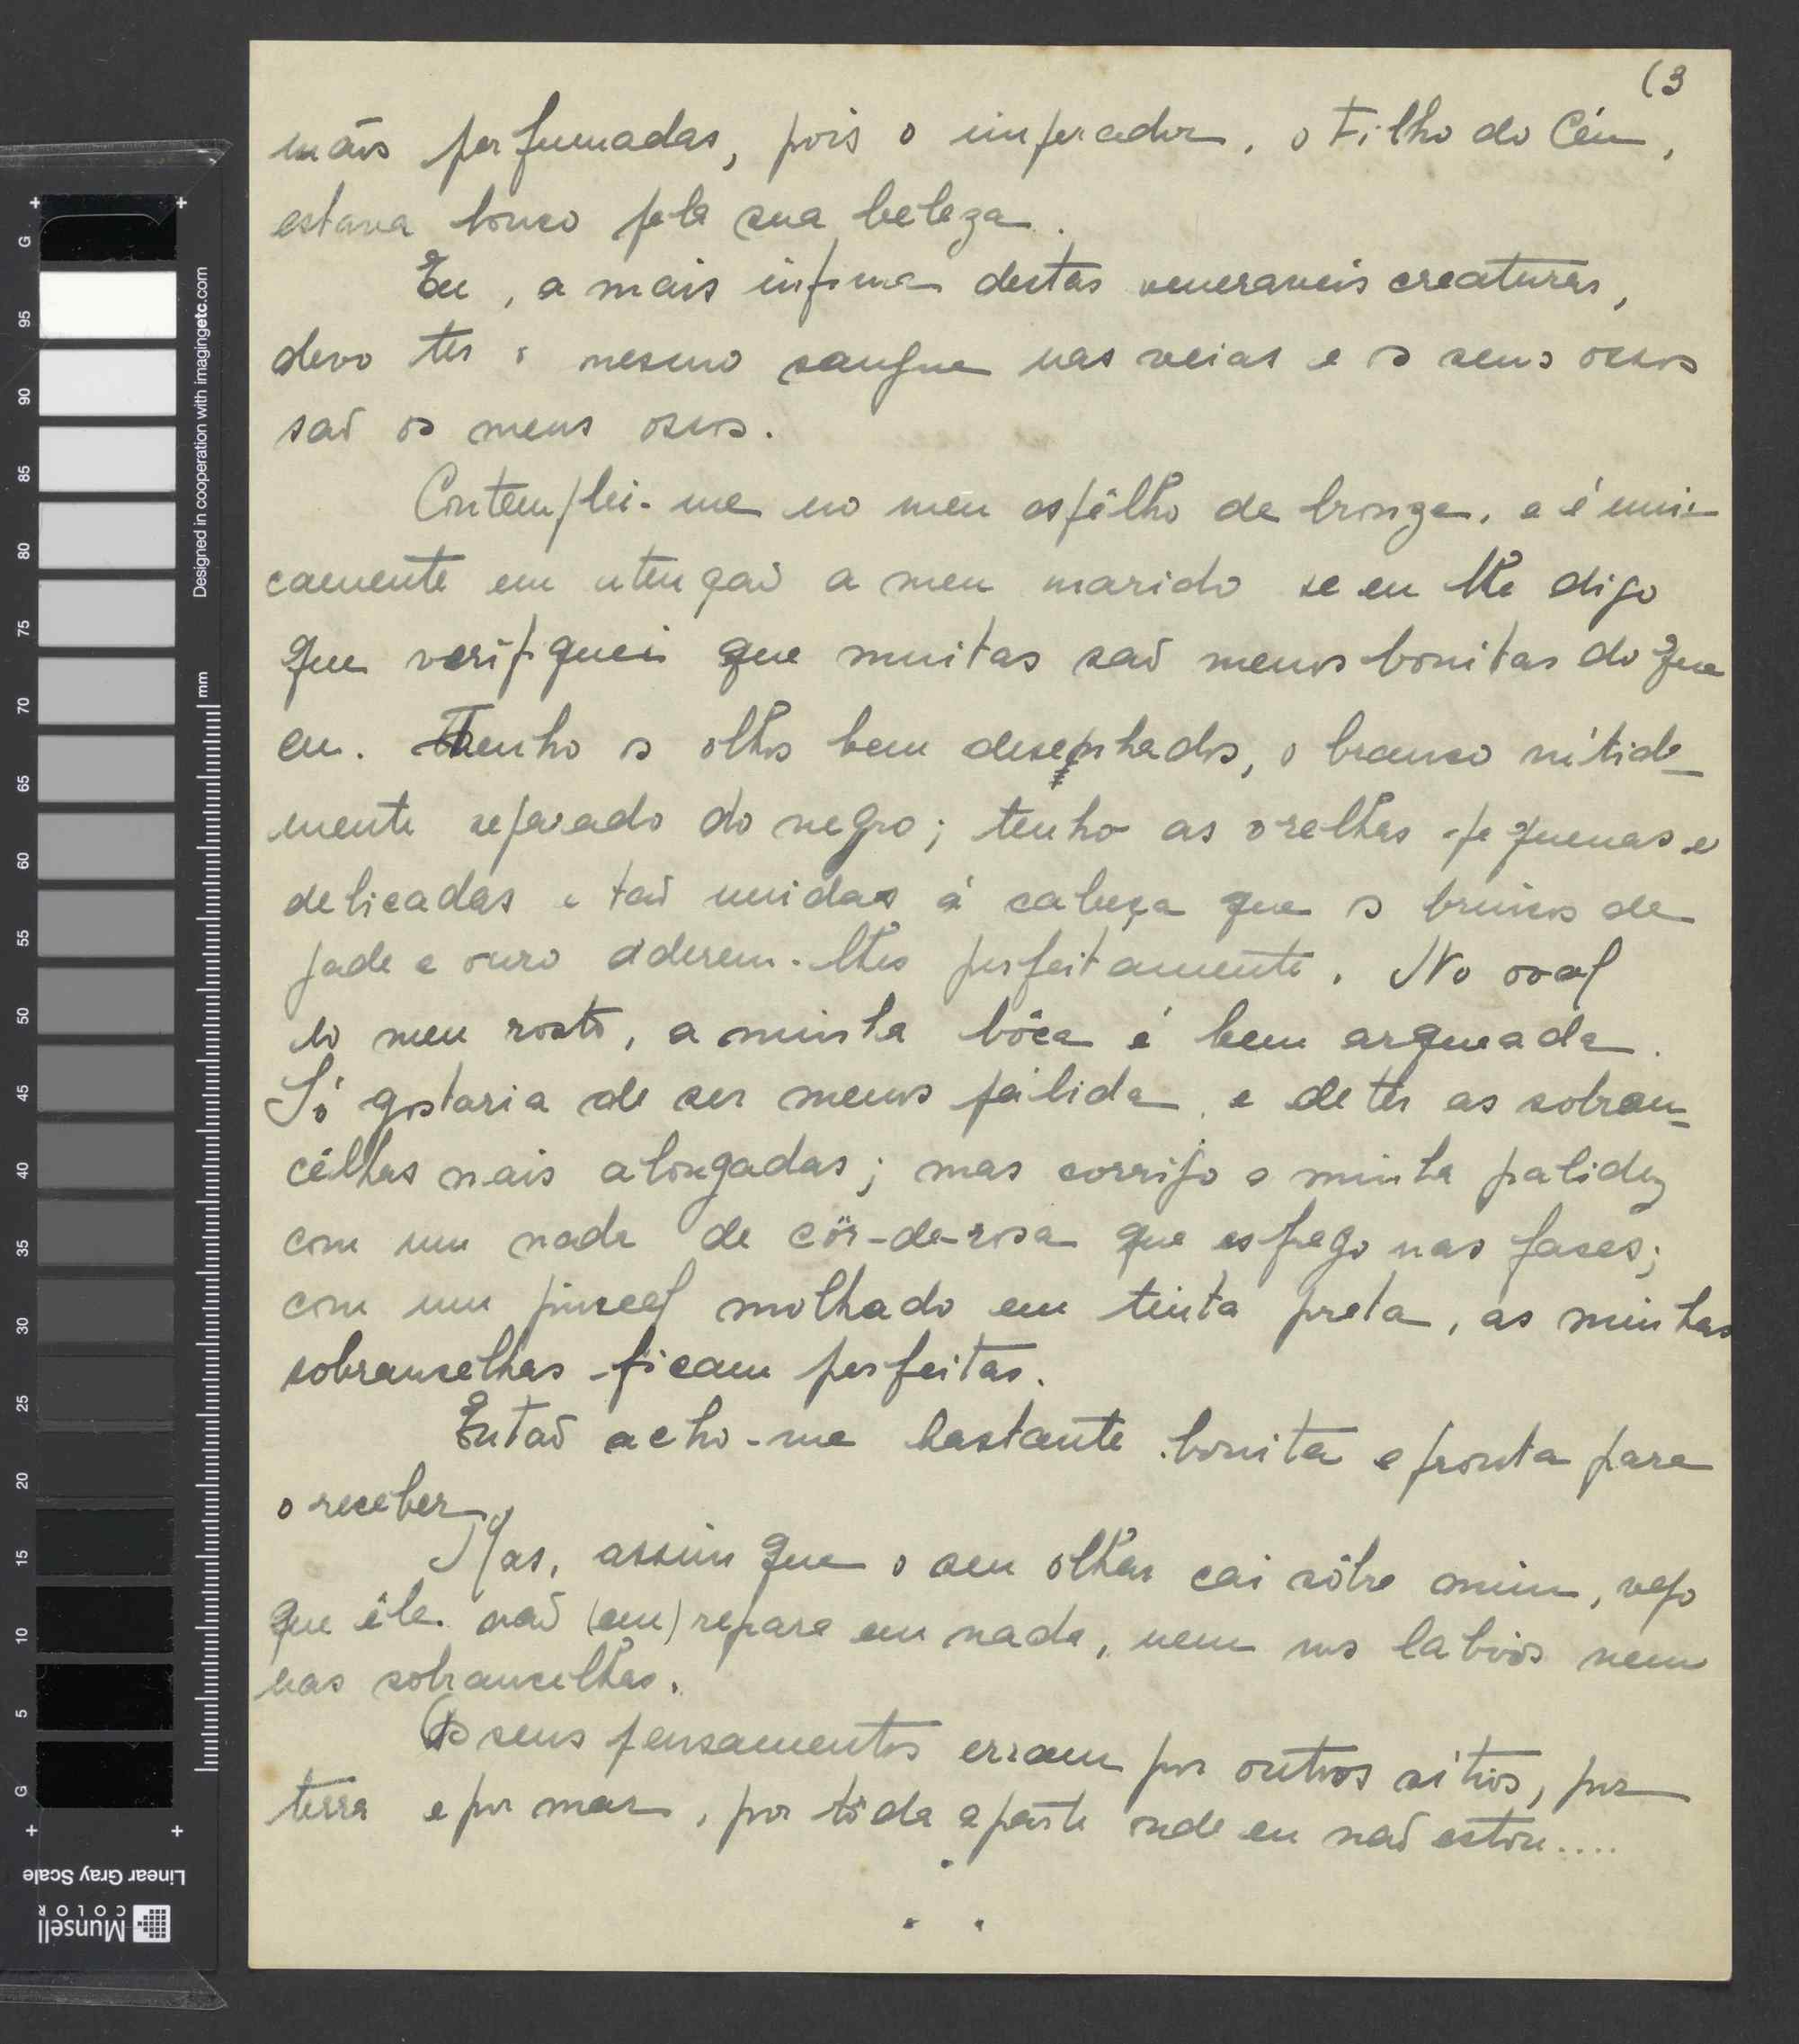 (3
mãos perfumadas, pois o imperador, o Filho do Céu,
estava louco pela sua beleza.
Eu, a mais infima destas veneraveis creaturas,
devo ter o mesmo sangue nas veias e os seus ossos
saõ os meus ossos.
Contemplei-me no meu espêlho de bronze, e é uni-
camente em atençaõ a meu marido se eu lhe digo
que verifiquei que muitas saõ menos bonitas do que
eu. Tenho os olhos bem desenhados, o branco nítida-
mente separado do negro; tenho as orelhas pequenas e
delicadas e taõ unidas á cabeça que os brincos de
jade e ouro aderem-lhes perfeitamente. No oval
do meu rosto, a minha bôca é bem arqueada.
Só gostaria de ser menos pálida, e de ter as sobran-
cêlhas mais alongadas; mas corrijo a minha palidez
com um nada de côr-de-rosa que esfrego nas faces;
com um pincel molhado em tinta preta, as minhas
sobrancelhas ficam perfeitas.
Entaõ acho-me bastante bonita e pronta para
o receber.
Mas, assim que o seu olhar cai sôbre mim, vejo
que êle naõ (em) repara em nada, nem nos labios nem
nas sobrancelhas.
Os seus pensamentos erram por outros sitios, por
terra e por mar, por tôda a parte onde eu naõ estou....
G
95
90
85
80
75
70
65
60
55
50
45
40
35
30
25
20
15
10
5
G
mm
Designed in cooperation with imagingetc.com
Linear Gray Scale
Munsell
COLOR